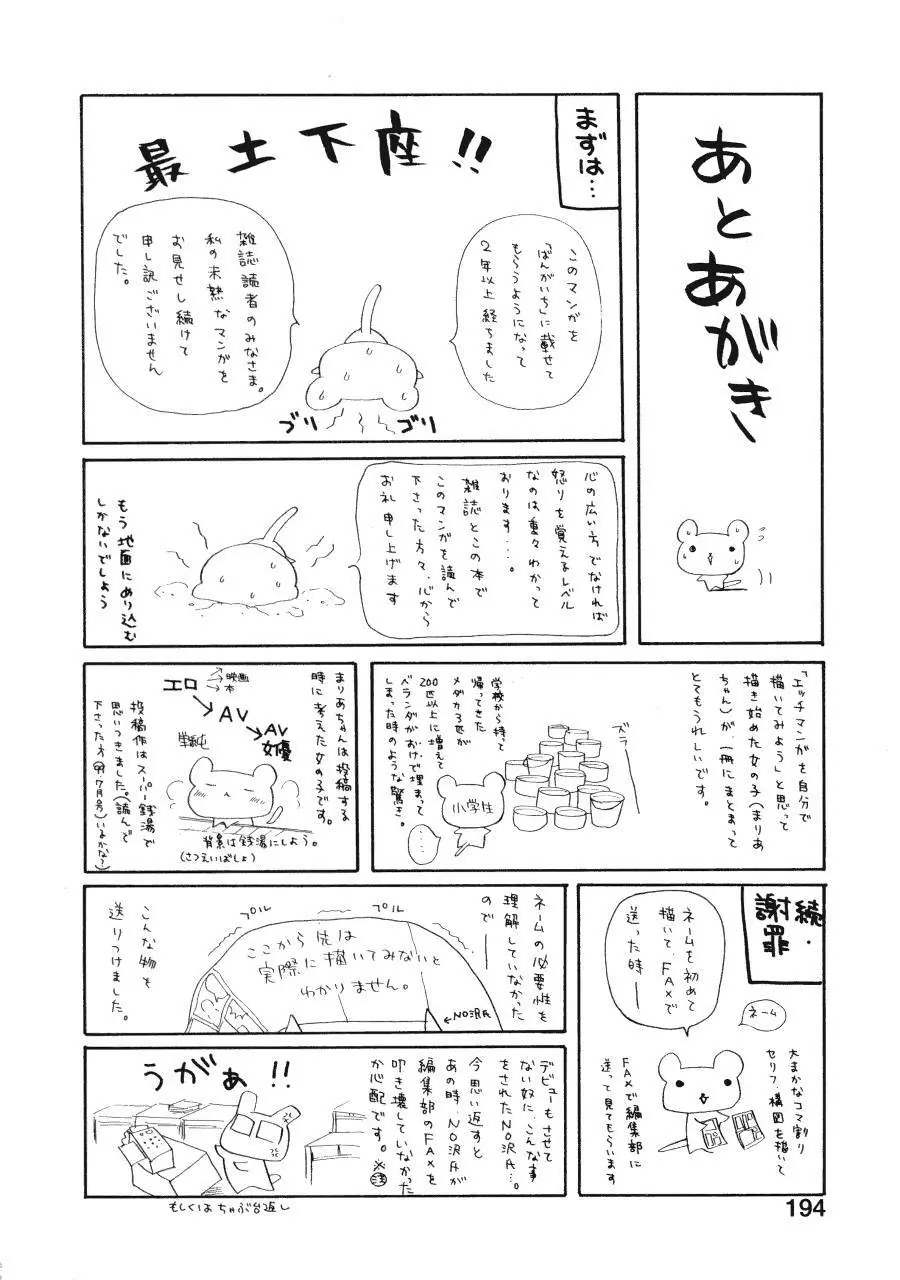 あとあがき
まずは…
最土下座!!
このマンガを
「ばんがいち」に載せて
もらうようになって
2年以上経ちました
雑誌読者のみなさま。
私の未熟なマンガを
お見せし続けて
申し訳ございません
でした。
ゴリ
ゴリ
心の広い方でなければ
怒りを覚えるレベル
なのは重々わかって
おります…。
雑誌とこの本で
このマンガを読んで
下さった方々、心から
お礼申し上げます
もう地面にめり込む
しかないでしょう
「エッチマンガを自分で
描いてみよう」と思って
描き始めた女の子(まりあ
ちゃん)が、一冊にまとまって
とてもうれしいです。
ズラー
学校から持って
帰ってきた
メダカ3匹が
200匹以上に増えて
ベランダがおけで埋まって
しまった時のような驚き。
小学生
まりあちゃんは投稿する
時に考えた女の子です。
エロ
映画
本
AV
AV
女優
単純
背景は銭湯にしよう。
(さつえいばしょ)
投稿作はスーパー銭湯で
思いつきました。(読んで
下さった方
7月号)いるかな?)
続・
謝罪
ネームを初めて
描いて、FAXで
送った時—
ネーム
大まかなコマ割り
セリフ、構図を描いて
FAXで編集部に
送って見てもらいます
ネームの必要性を
理解していなかった
ので—
プル
プル
ここから先は
実際に描いてみないと
わかりません。
←NO沢氏
こんな物を
送りつけました。
デビューもさせて
ない奴に、こんな事
をされたNO沢氏…。
今思い返すと
あの時、NO沢氏が
編集部のFAXを
叩き壊していなかった
か心配です。※注
うがぁ!!
もしくはちゃぶ台返し
194